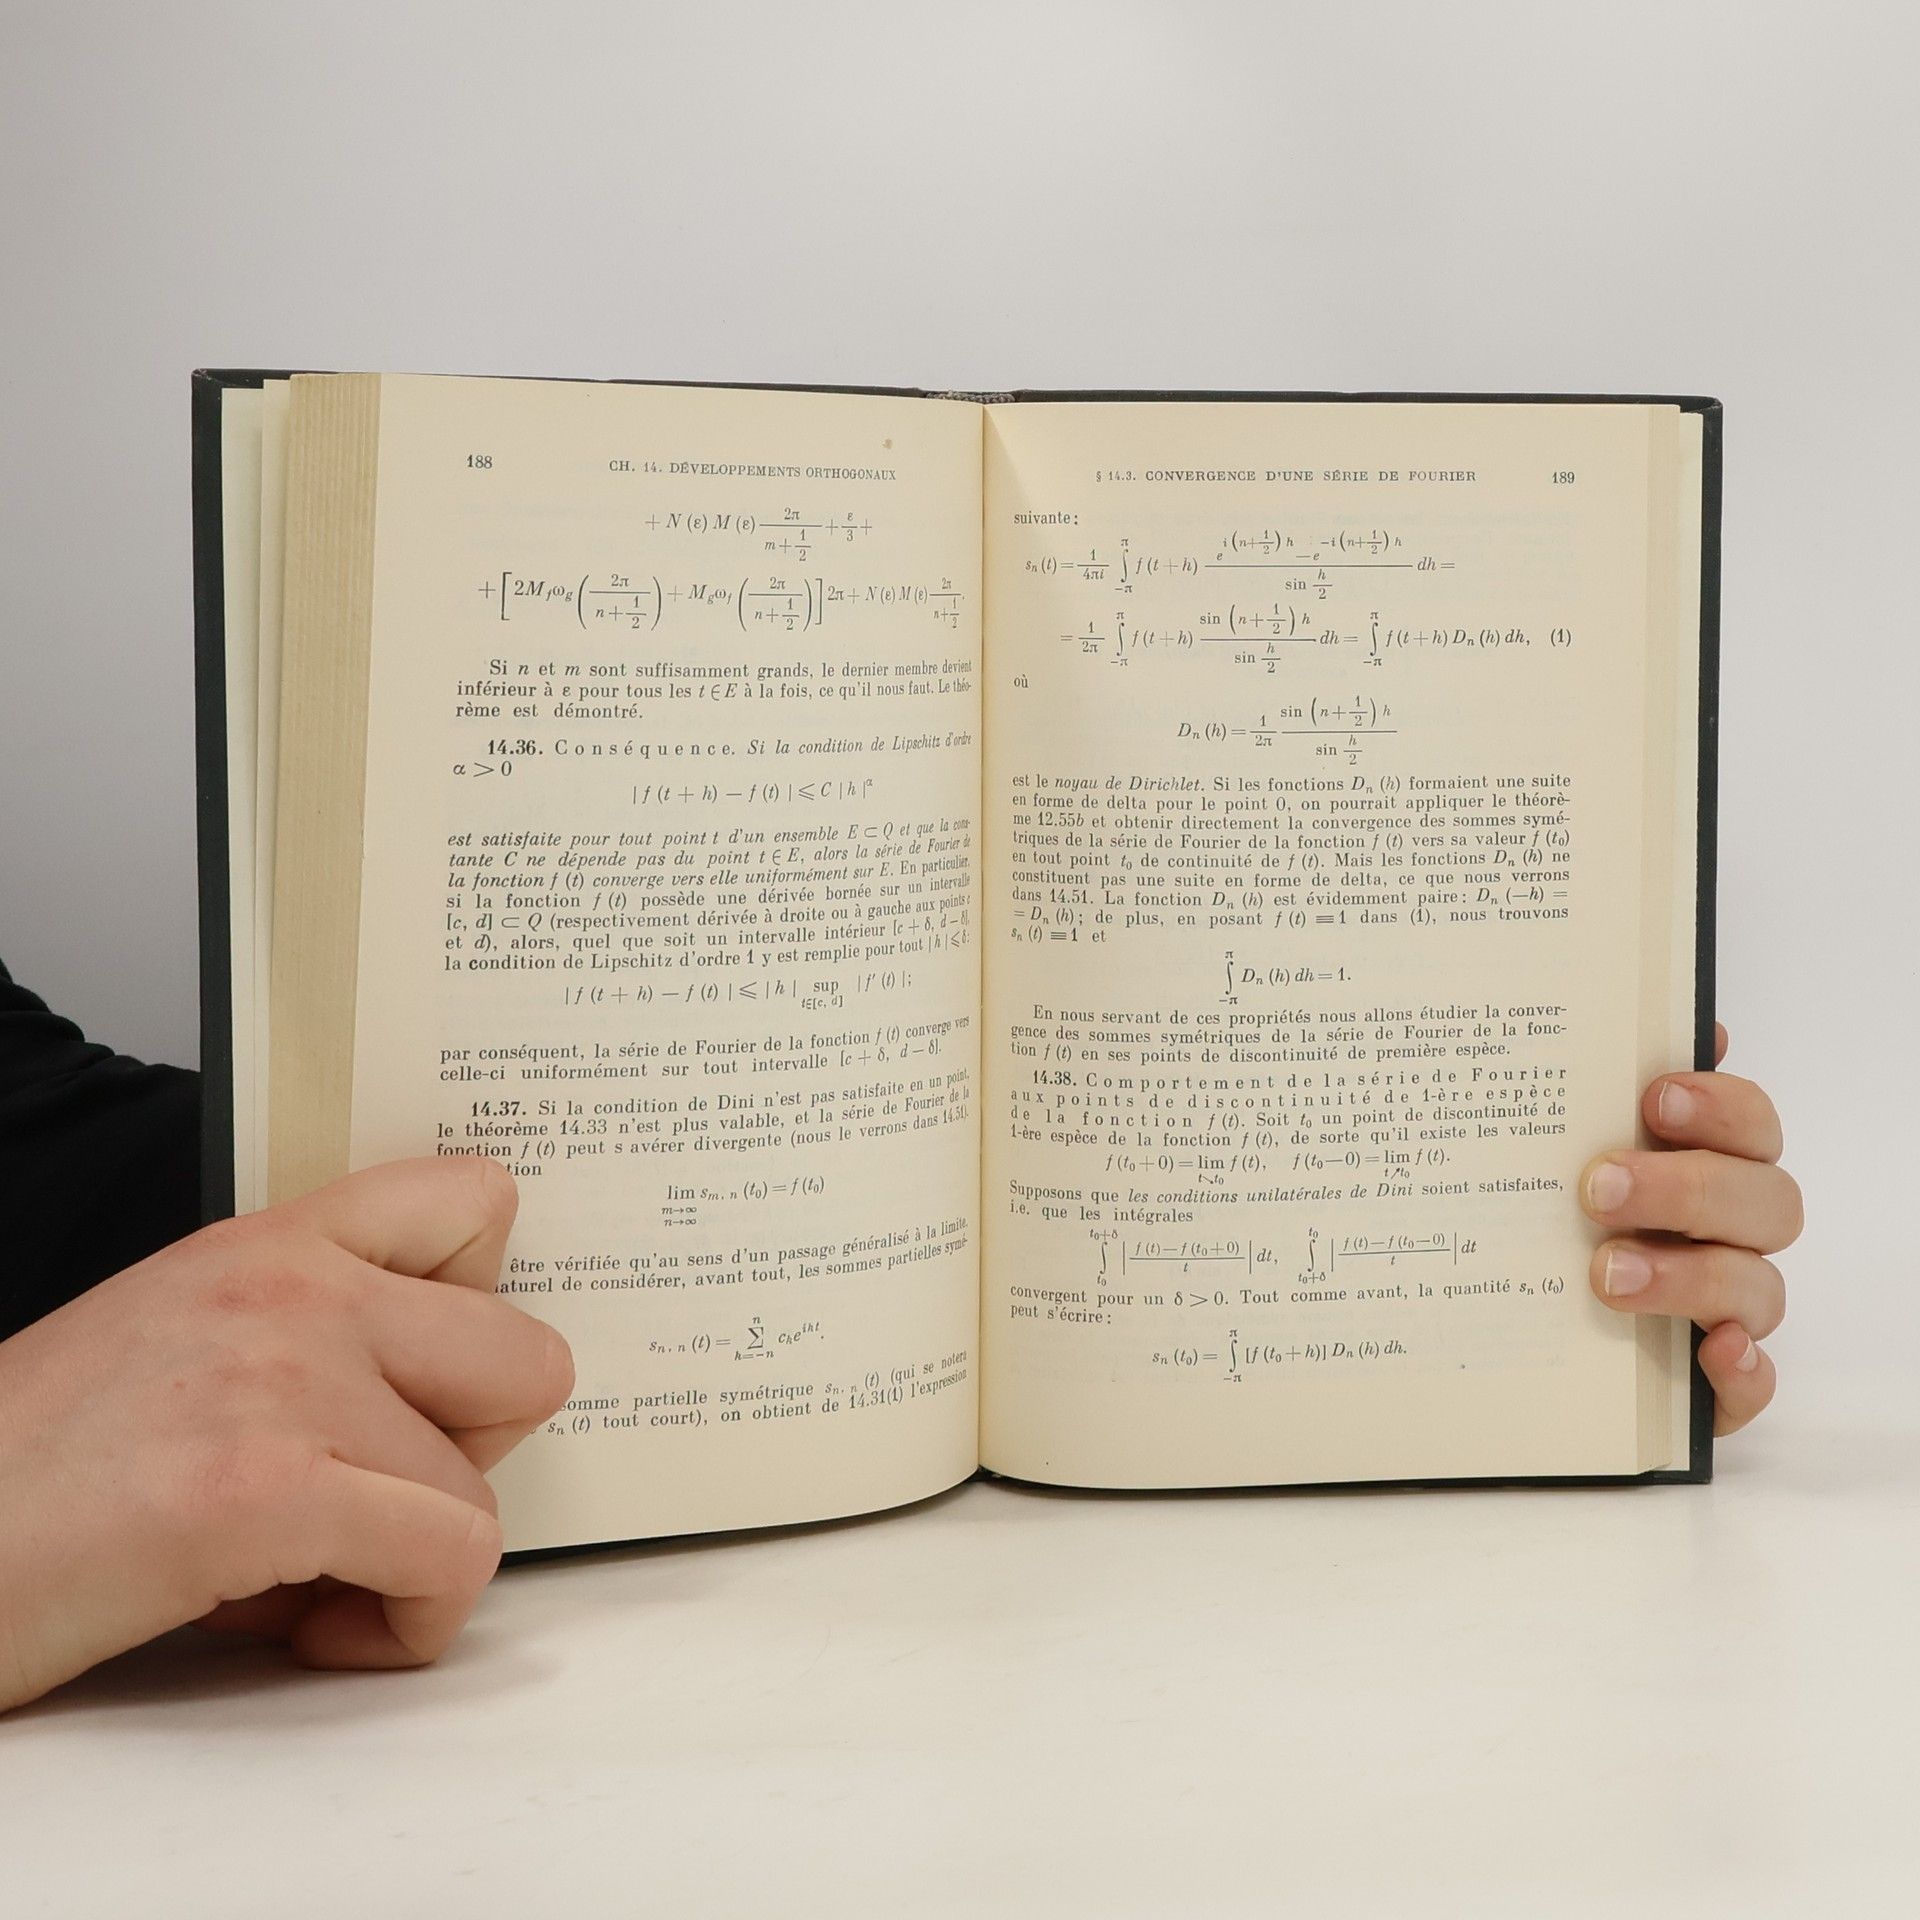 188
CH. 14. DÉVELOPPEMENTS ORTHOGONAUX
+ N (ε) M (ε) 2π/(m+1/2) + ε/3 +
+ [2M_f ω_g (2π/(n+1/2)) + M_g ω_f (2π/(n+1/2))] 2π + N (ε) M (ε) 2π/(n+1/2).
Si n et m sont suffisamment grands, le dernier membre devient
inférieur à ε pour tous les t ∈ E à la fois, ce qu'il nous faut. Le théo-
rème est démontré.
14.36. Conséquence. Si la condition de Lipschitz d'ordre
α > 0
| f (t + h) − f (t) | ⩽ C | h |^α
est satisfaite pour tout point t d'un ensemble E ⊂ Q et que la cons-
tante C ne dépende pas du point t ∈ E, alors la série de Fourier de
la fonction f (t) converge vers elle uniformément sur E. En particulier,
si la fonction f (t) possède une dérivée bornée sur un intervalle
[c, d] ⊂ Q (respectivement dérivée à droite ou à gauche aux points c
et d), alors, quel que soit un intervalle intérieur [c + δ, d − δ],
la condition de Lipschitz d'ordre 1 y est remplie pour tout | h | ⩽ δ:
| f (t + h) − f (t) | ⩽ | h | sup_{t∈[c, d]} | f′ (t) |;
par conséquent, la série de Fourier de la fonction f (t) converge vers
celle-ci uniformément sur tout intervalle [c + δ, d − δ].
14.37. Si la condition de Dini n'est pas satisfaite en un point,
le théorème 14.33 n'est plus valable, et la série de Fourier de la
fonction f (t) peut s avérer divergente (nous le verrons dans 14.51).
tion
lim_{m→∞, n→∞} s_{m, n} (t₀) = f (t₀)
être vérifiée qu'au sens d'un passage généralisé à la limite.
aturel de considérer, avant tout, les sommes partielles symé-
s_{n, n} (t) = ∑_{k=−n}^{n} c_k e^{ikt}.
somme partielle symétrique s_{n, n} (t) (qui se notera
s_n (t) tout court), on obtient de 14.31(1) l'expression
§ 14.3. CONVERGENCE D'UNE SÉRIE DE FOURIER
189
suivante:
s_n (t) = 1/(4πi) ∫_{−π}^{π} f (t + h) (e^{i(n+1/2)h} − e^{−i(n+1/2)h})/(sin h/2) dh =
= 1/(2π) ∫_{−π}^{π} f (t + h) (sin (n+1/2) h)/(sin h/2) dh = ∫_{−π}^{π} f (t + h) D_n (h) dh, (1)
où
D_n (h) = 1/(2π) (sin (n+1/2) h)/(sin h/2)
est le noyau de Dirichlet. Si les fonctions D_n (h) formaient une suite
en forme de delta pour le point 0, on pourrait appliquer le théorè-
me 12.55b et obtenir directement la convergence des sommes symé-
triques de la série de Fourier de la fonction f (t) vers sa valeur f (t₀)
en tout point t₀ de continuité de f (t). Mais les fonctions D_n (h) ne
constituent pas une suite en forme de delta, ce que nous verrons
dans 14.51. La fonction D_n (h) est évidemment paire: D_n (−h) =
= D_n (h); de plus, en posant f (t) ≡ 1 dans (1), nous trouvons
s_n (t) ≡ 1 et
∫_{−π}^{π} D_n (h) dh = 1.
En nous servant de ces propriétés nous allons étudier la conver-
gence des sommes symétriques de la série de Fourier de la fonc-
tion f (t) en ses points de discontinuité de première espèce.
14.38. Comportement de la série de Fourier
aux points de discontinuité de 1-ère espèce
de la fonction f (t). Soit t₀ un point de discontinuité de
1-ère espèce de la fonction f (t), de sorte qu'il existe les valeurs
f (t₀ + 0) = lim_{t↘t₀} f (t), f (t₀ − 0) = lim_{t↗t₀} f (t).
Supposons que les conditions unilatérales de Dini soient satisfaites,
i.e. que les intégrales
∫_{t₀}^{t₀+δ} | (f (t) − f (t₀ + 0))/t | dt, ∫_{t₀+δ}^{t₀} | (f (t) − f (t₀ − 0))/t | dt
convergent pour un δ > 0. Tout comme avant, la quantité s_n (t₀)
peut s'écrire:
s_n (t₀) = ∫_{−π}^{π} [f (t₀ + h)] D_n (h) dh.